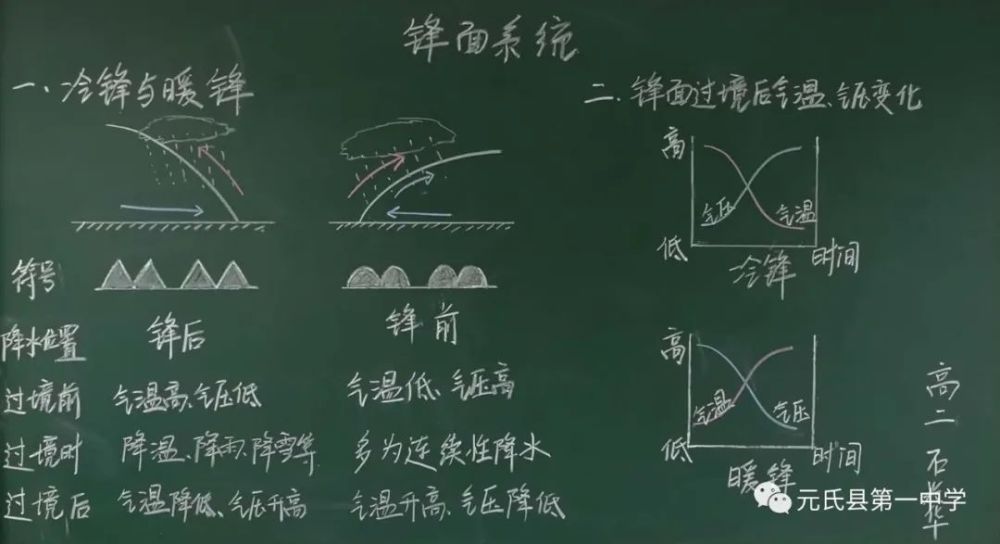 锋面系统
一、冷锋与暖锋
符号
降水位置 锋后 锋前
过境前 气温高、气压低 气温低、气压高
过境时 降温、降雨、降雪等 多为连续性降水
过境后 气温降低、气压升高 气温升高、气压降低
二、锋面过境后气温、气压变化
高
气压 气温
低 时间
冷锋
高
气温 气压
低 时间
暖锋
高二 石
华
元氏县第一中学